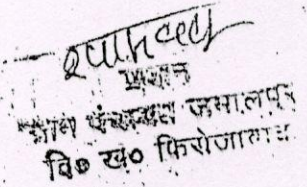 प्रधान
ग्राम पंचायत जमालपुर
वि० ख० फिरोजाबाद